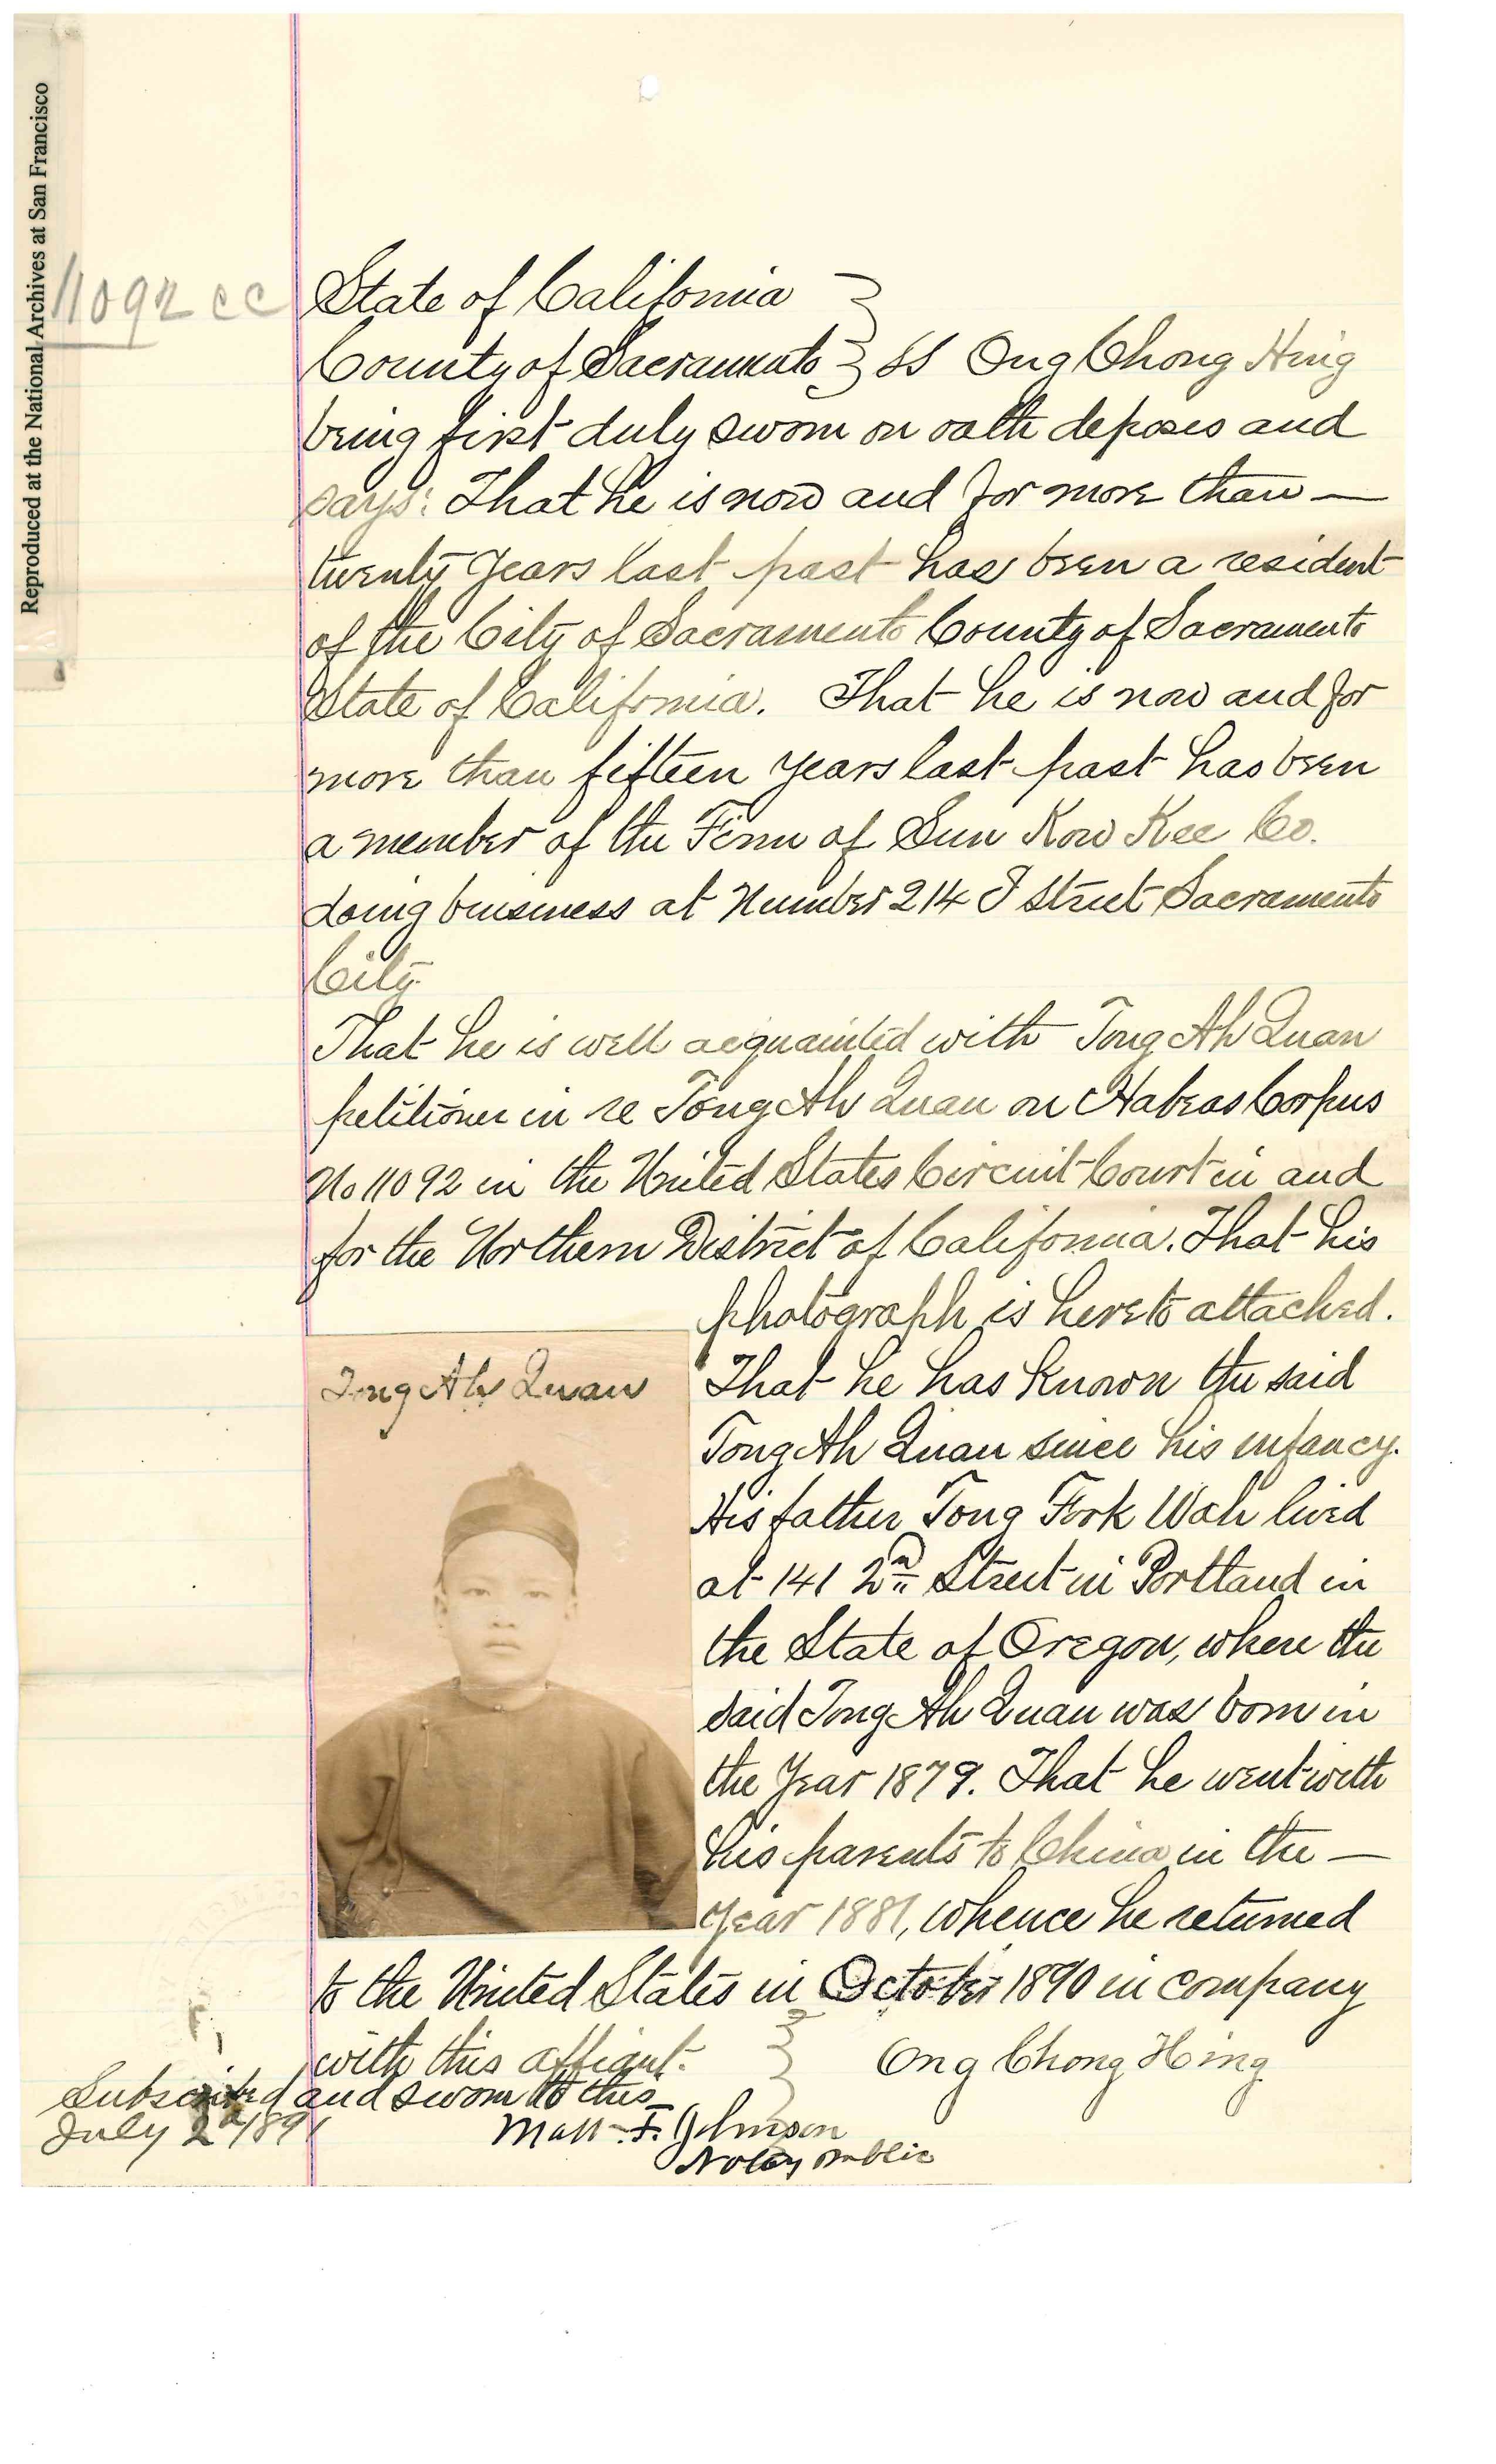 Reproduced at the National Archives at San Francisco
11092 cc
State of California
County of Sacramento } SS Ong Chong Hing
being first duly sworn on oath deposes and
says: That he is now and for more than —
twenty years last past has been a resident
of the City of Sacramento County of Sacramento
State of California. That he is now and for
more than fifteen years last past has been
a member of the Firm of Sun Kow Kee Co.
doing business at Number 214 I Street Sacramento
City
That he is well acquainted with Tong Ah Quan
petitioner in re Tong Ah Quan on Habeas Corpus
No 11092 in the United States Circuit Court in and
for the Northern District of California. That his
photograph is hereto attached.
Tong Ah Quan
That he has known the said
Tong Ah Quan since his infancy.
His father Tong Fork Wah lived
at 141 2nd Street in Portland in
the State of Oregon, where the
said Tong Ah Quan was born in
the Year 1879. That he went with
his parents to China in the —
Year 1881, whence he returned
to the United States in October 1890 in company
with this affiant.
Ong Chong Hing
Subscribed and sworn to this
July 2d 1891
Matt. F. Johnson
Notary Public